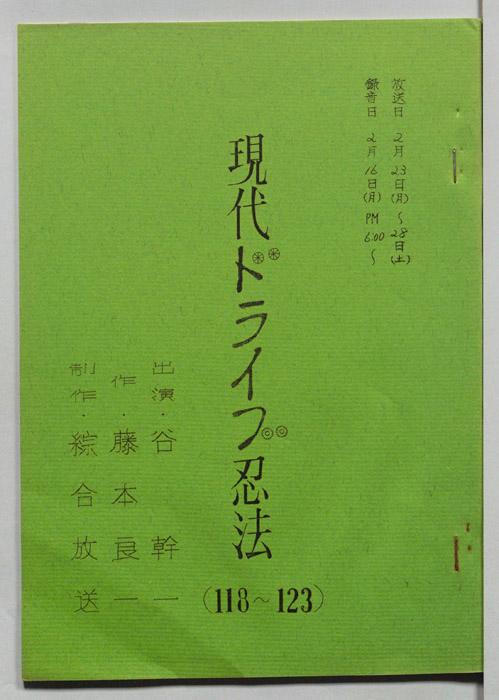 放送日 2月23日(月)～28日(土)
録音日 2月16日(月) PM 6:00～
現代ドライブ忍法
(118～123)
出演・谷幹一
作・藤本良一
制作・綜合放送